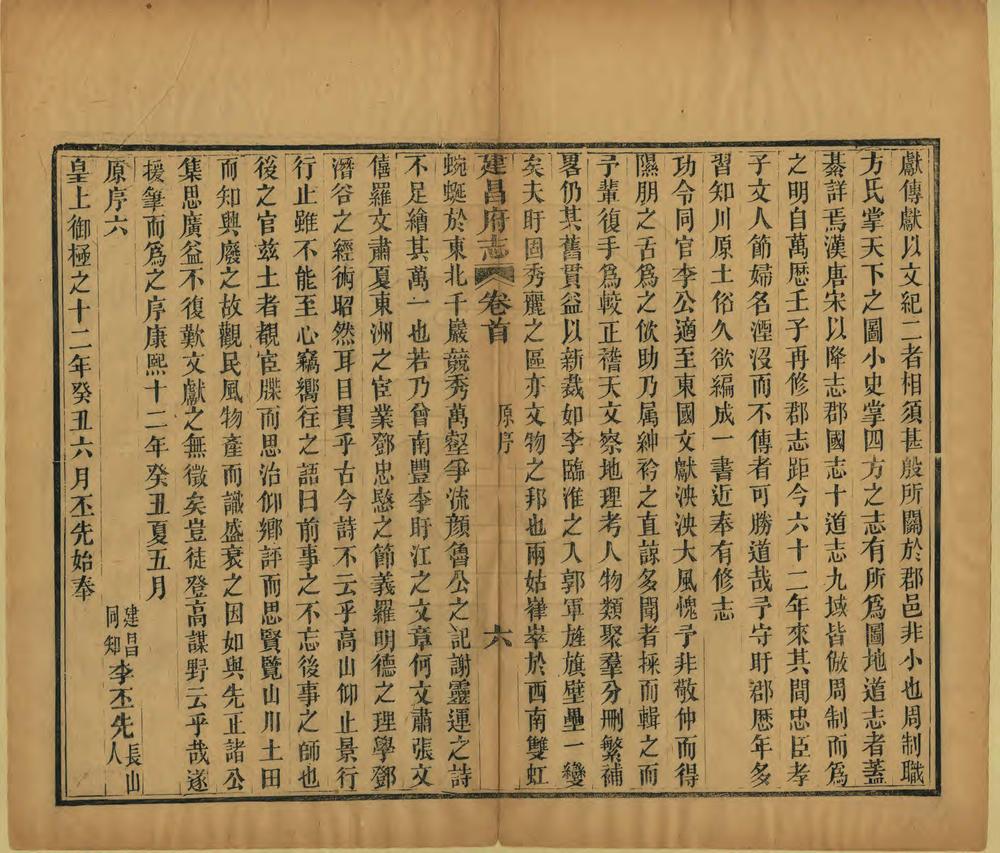 獻傳獻以文紀二者相須甚殷所關於郡邑非小也周制職
方氏掌天下之圖小史掌四方之志有所爲圖地道志者蓋
綦詳焉漢唐宋以降志郡國志十道志九域皆倣周制而爲
之明自萬厯壬子再修郡志距今六十二年來其間忠臣孝
子文人節婦名湮沒而不傳者可勝道哉予守盱郡歷年多
習知川原土俗久欲編成一書近奉有修志
功令同官李公適至東國文獻泱泱大風愧予非敬仲而得
隰朋之舌爲之佽助乃属紳衿之直諒多聞者採而輯之而
予輩復手爲較正禬天文察地理考人物類聚羣分刪繁補
畧仍其舊貫益以新裁如李臨淮之入郭軍旌旗壁壘一變
矣夫盱固秀麗之區亦文物之邦也兩姑嵂崒於西南雙虹
建昌府志 卷首 原序 六
蜿蜒於東北千巖競秀萬壑爭流顔魯公之記謝靈運之詩
不足繪其萬一也若乃曾南豐李盱江之文章何文肅張文
僖羅文肅夏東洲之宦業鄧忠愍之節義羅明德之理學鄧
潛谷之經術昭然耳目貫乎古今詩不云乎高山仰止景行
行止雖不能至心竊嚮往之語曰前事之不忘後事之師也
後之官兹土者覩宦牒而思治仰鄉評而思賢覽山川土田
而知興廢之故觀民風物產而識盛衰之因如與先正諸公
集思廣益不復歎文獻之無徵矣豈徒登高謀野云乎哉遂
援筆而爲之序康熙十二年癸丑夏五月
原序六 建昌同知李丕先長山人
皇上御極之十二年癸丑六月丕先始奉